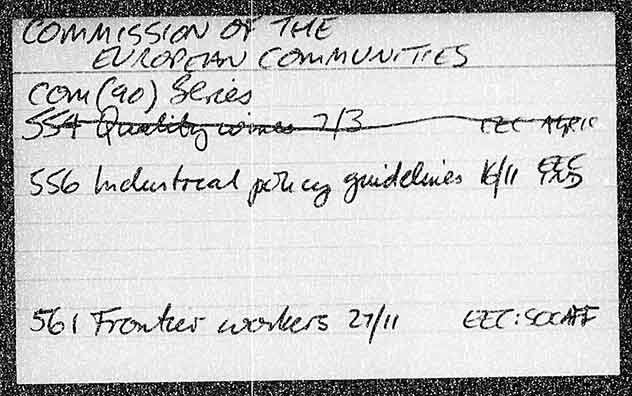 COMMISSION OF THE
EUROPEAN COMMUNITIES
COM(90) Series
554 Quality wines 7/3 EEC AGRIC
556 Industrial policy guidelines 16/11 EEC IND
561 Frontier workers 27/11 EEC:SOCAFF